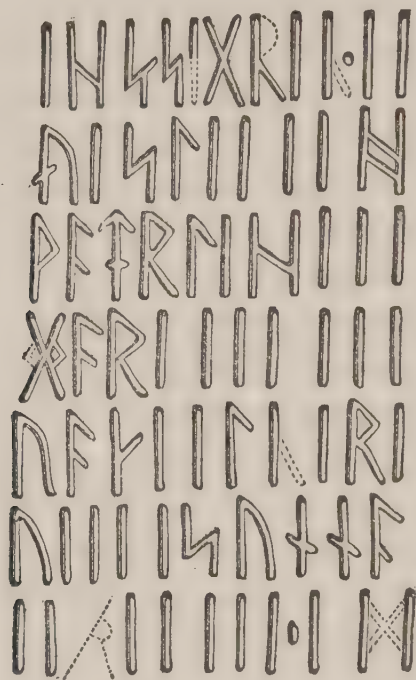 ᛁᚺᛋᛋᛁᚷᚱᛁᛁ·ᛁᛁ
ᚢᛁᛋᛚᛁᛁᛁᛁᚻ
ᚹᚨᛏᚱᛚᛁᚺᛁᛁᛁ
ᚷᚨᚱᛁᛁᛁᛁᛁᛁᛁ
ᚢᚨᚴᛁᛁᛚᛁᛁᚱᛁ
ᚢᛁᛁᛁᛁᛋᚢᚾᚾᚨ
ᛁᛁᛁᛁᛁᛁᛁ·ᛁᛞ